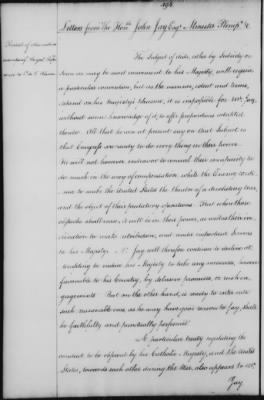 498
Letters from the Honble John Jay Esqr. Minister Plenipy. &c
The Subject of aids, either by Subsidy or
Loan as may be most convenient to his Majesty, will require
a particular convention, but as the manner, extent and terms,
depend on his Majesty's pleasure, it is impossible for Mr. Jay,
without some knowledge of it, to offer propositions intitled
thereto. All that he can at present say on that Subject is
that Congress are ready to do every thing in their power.
He will not however endeavor to conceal their incapacity to
do much in the way of compensation, while the Enemy conti-
nue to make the United States the theatre of a desolating war,
and the object of their predatory operations. But when those
obstacles shall cease, it will be in their power, as well as their in-
clination to make retribution, and render important services
to his Majesty. Mr. Jay will therefore continue to decline at-
tempting to induce his Majesty to take any measures, however
favourable to his Country, by delusive promises, or rash en-
gagements. But on the other hand, is ready to enter into
such reasonable ones as he may have good reason to say, shall
be faithfully and punctually performed.
A particular treaty regulating the
conduct to be observed by his Catholic Majesty, and the United
States, towards each other during the War, also appears to Mr.
Jay